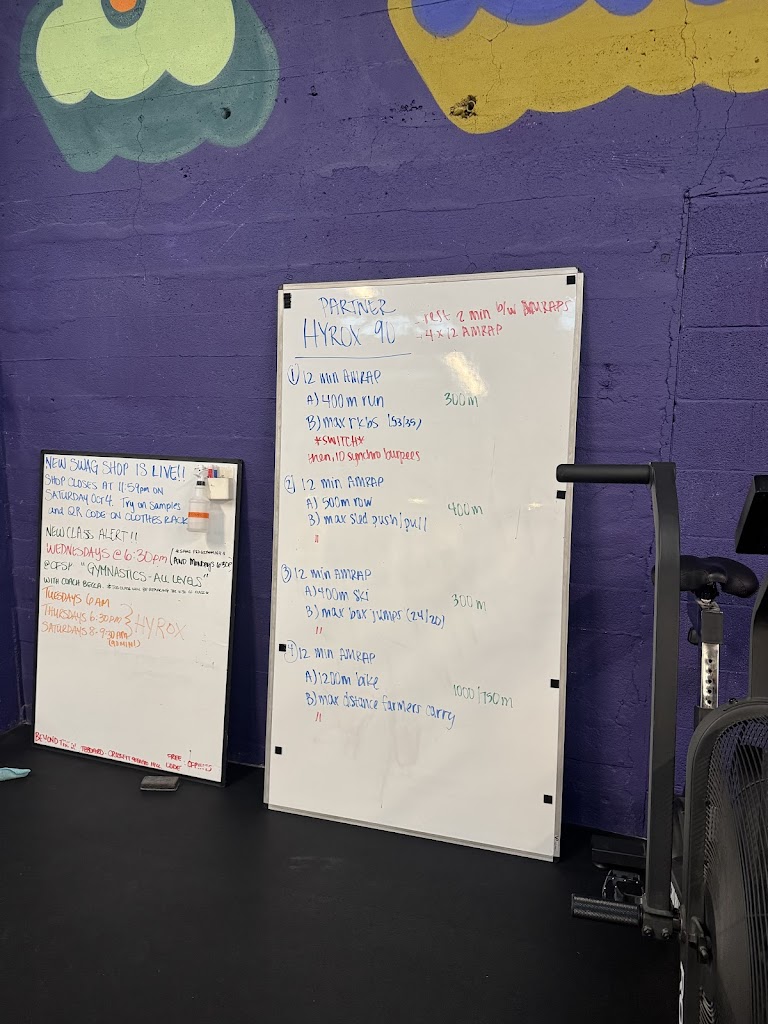 NEW SWAG SHOP IS LIVE!!
SHOP CLOSES AT 11:59pm ON
SATURDAY OCT 4. Try on samples
and QR CODE ON CLOTHES RACK
NEW CLASS ALERT!!
WEDNESDAYS @ 6:30pm (AND Mondays 6:30P
@CFSP "GYMNASTICS - ALL LEVELS"
WITH COACH BECCA.
TUESDAYS 6AM
THURSDAYS 6:30PM } HYROX
SATURDAYS 8-9:30AM
(90MIN!)
FREE
CODE
PARTNER
HYROX 90
rest 2 min b/w AMRAPS
4 x 12 AMRAP
① 12 min AMRAP
A) 400m run 300m
B) max rkbs (53/35)
*SWITCH*
then, 10 synchro burpees
② 12 min AMRAP
A) 500m row 400m
B) max sled push/pull
"
③ 12 min AMRAP
A) 400m ski 300m
B) max box jumps (24/20)
"
④ 12 min AMRAP
A) 1200m bike 1000/750m
B) max distance farmers carry
"